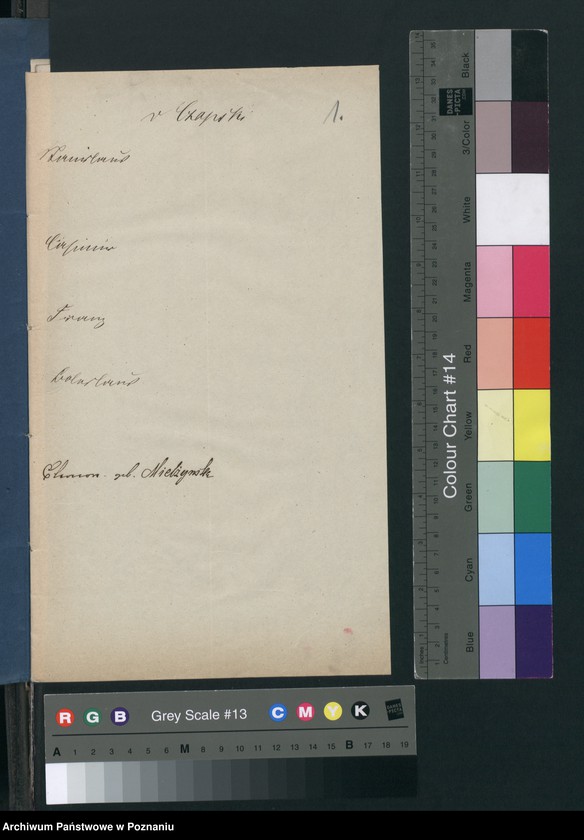 v Czapski 1.
Stanislaus
Casimir
Franz
Boleslaus
geb. Mielżynska
Colour Chart #14
Black
3/Color
White
Magenta
Red
Yellow
Green
Cyan
Blue
DANES
PICTA
Inches
Centimetres
R G B Grey Scale #13 C M Y K
A 1 2 3 4 5 6 M 8 9 10 11 12 13 14 15 B 17 18 19
Archiwum Państwowe w Poznaniu